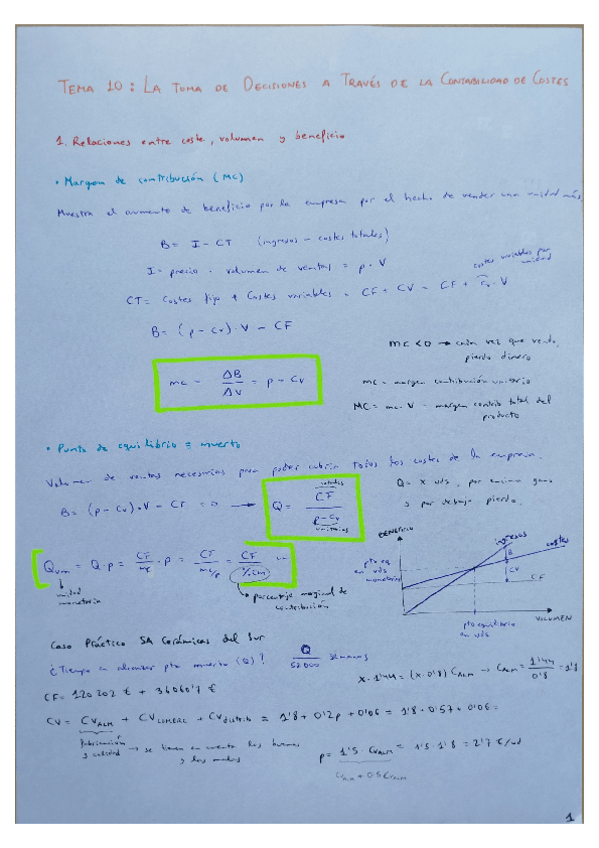 TEMA 10: LA TOMA DE DECISIONES A TRAVÉS DE LA CONTABILIDAD DE COSTES
1. Relaciones entre coste, volumen y beneficio
• Margen de contribución (MC)
Muestra el aumento de beneficio por la empresa por el hecho de vender una unidad más.
B = I - CT (ingresos - costes totales)
I = precio · volumen de ventas = p · V
costes variables por unidad
CT = Costes fijo + Costes variables = CF + CV = CF + cv · V
B = (p - cv) · V - CF
mc < 0 → cada vez que vendo, pierdo dinero
mc = ΔB/ΔV = p - cv
mc = margen contribución unitario
MC = mc · V = margen contrib total del producto
• Punto de equilibrio = muerto
Volumen de ventas necesarias para poder cubrir todos los costes de la empresa.
B = (p - cv) · V - CF = 0 → Q = CF / p - cv
unitarios
Q = x uds, por encima gano y por debajo pierdo.
Qum = Q · p = CF/mc · p = CF / mc/p = CF / %mc
unidad monetaria
porcentaje marginal de contribución
BENEFICIO
ingresos
costes
B
CV
CF
pto eq en uds monetarias
VOLUMEN
pto equilibrio en uds
Caso Práctico SA Cerámicas del Sur
¿Tiempo en alcanzar pto muerto (Q)? Q / 52000 semanas
x · 1'44 = (x · 0'8) CALM → CALM = 1'44 / 0'8 = 1'8
CF = 120 202 € + 36060'7 €
CV = CVALM + CVCOMERC + CVdistrib = 1'8 + 0'2p + 0'06 = 1'8 + 0'54 + 0'06 =
Fabricación y calidad → se tienen en cuenta las buenas y las malas
p = 1'5 CVALM = 1'5 · 1'8 = 2'7 €/ud
CALM + 0'5 CVALM
1